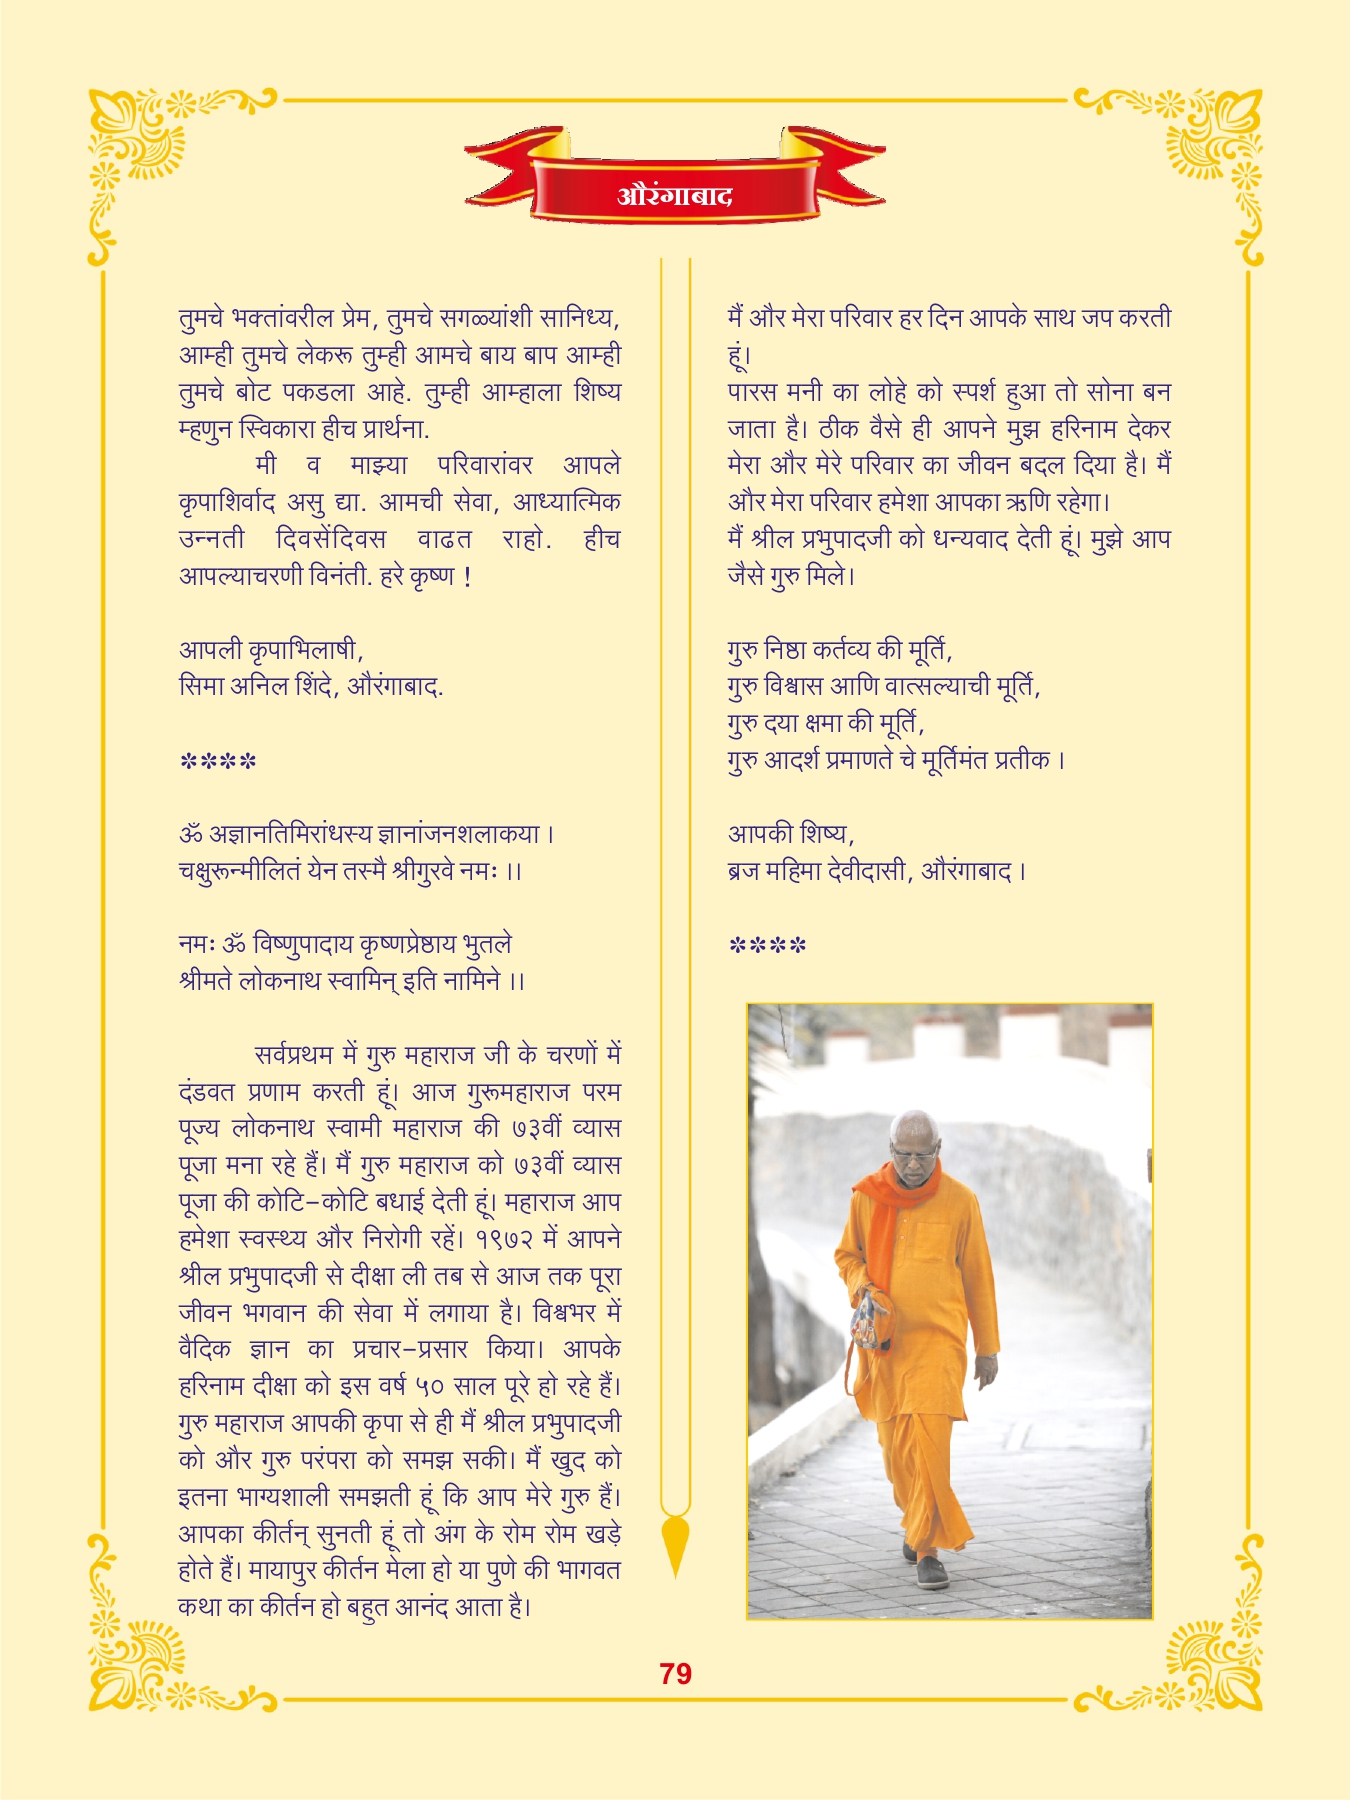 औरंगाबाद
तुमचे भक्तांवरील प्रेम, तुमचे सगळ्यांशी सानिध्य,
आम्ही तुमचे लेकरू तुम्ही आमचे बाय बाप आम्ही
तुमचे बोट पकडला आहे. तुम्ही आम्हाला शिष्य
म्हणुन स्विकारा हीच प्रार्थना.
मी व माझ्या परिवारांवर आपले
कृपाशिर्वाद असु द्या. आमची सेवा, आध्यात्मिक
उन्नती दिवसेंदिवस वाढत राहो. हीच
आपल्याचरणी विनंती. हरे कृष्ण !
आपली कृपाभिलाषी,
सिमा अनिल शिंदे, औरंगाबाद.
****
ॐ अज्ञानतिमिरांधस्य ज्ञानांजनशलाकया ।
चक्षुरून्मीलितं येन तस्मै श्रीगुरवे नमः ।।
नमः ॐ विष्णुपादाय कृष्णप्रेष्ठाय भुतले
श्रीमते लोकनाथ स्वामिन् इति नामिने ।।
सर्वप्रथम में गुरु महाराज जी के चरणों में
दंडवत प्रणाम करती हूं। आज गुरूमहाराज परम
पूज्य लोकनाथ स्वामी महाराज की ७३वीं व्यास
पूजा मना रहे हैं। मैं गुरु महाराज को ७३वीं व्यास
पूजा की कोटि-कोटि बधाई देती हूं। महाराज आप
हमेशा स्वस्थ्य और निरोगी रहें। १९७२ में आपने
श्रील प्रभुपादजी से दीक्षा ली तब से आज तक पूरा
जीवन भगवान की सेवा में लगाया है। विश्वभर में
वैदिक ज्ञान का प्रचार-प्रसार किया। आपके
हरिनाम दीक्षा को इस वर्ष ५० साल पूरे हो रहे हैं।
गुरु महाराज आपकी कृपा से ही मैं श्रील प्रभुपादजी
को और गुरु परंपरा को समझ सकी। मैं खुद को
इतना भाग्यशाली समझती हूं कि आप मेरे गुरु हैं।
आपका कीर्तन् सुनती हूं तो अंग के रोम रोम खड़े
होते हैं। मायापुर कीर्तन मेला हो या पुणे की भागवत
कथा का कीर्तन हो बहुत आनंद आता है।
मैं और मेरा परिवार हर दिन आपके साथ जप करती
हूं।
पारस मनी का लोहे को स्पर्श हुआ तो सोना बन
जाता है। ठीक वैसे ही आपने मुझ हरिनाम देकर
मेरा और मेरे परिवार का जीवन बदल दिया है। मैं
और मेरा परिवार हमेशा आपका ऋणि रहेगा।
मैं श्रील प्रभुपादजी को धन्यवाद देती हूं। मुझे आप
जैसे गुरु मिले।
गुरु निष्ठा कर्तव्य की मूर्ति,
गुरु विश्वास आणि वात्सल्याची मूर्ति,
गुरु दया क्षमा की मूर्ति,
गुरु आदर्श प्रमाणते चे मूर्तिमंत प्रतीक ।
आपकी शिष्य,
ब्रज महिमा देवीदासी, औरंगाबाद ।
****
79